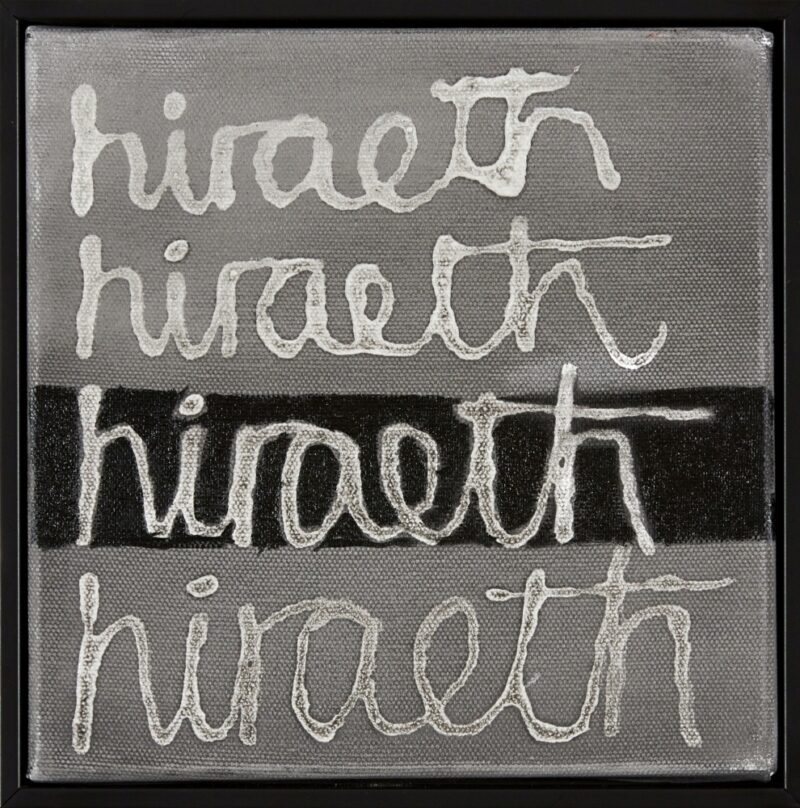 hiraeth
hiraeth
hiraeth
hiraeth